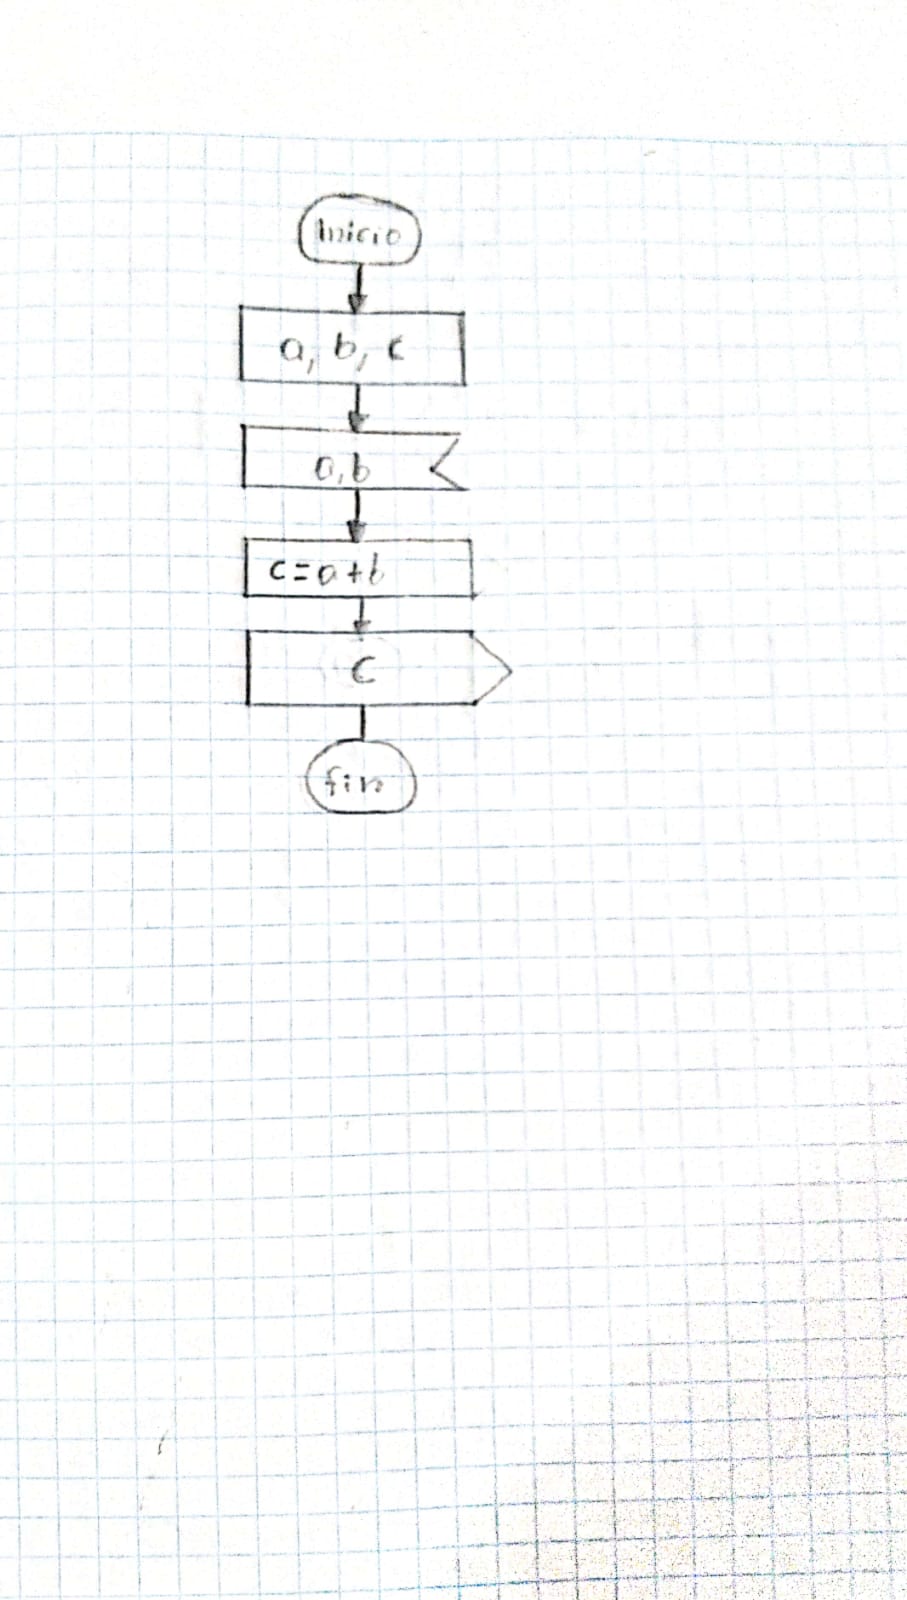 Inicio
a, b, c
a,b
c=a+b
c
fin